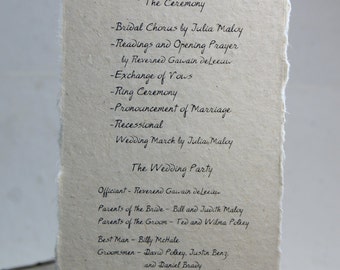 The Ceremony
-Bridal Chorus by Julia Maloy
-Readings and Opening Prayer
by Reverned Gawain deLeeuw
-Exchange of Vows
-Ring Ceremony
-Pronouncement of Marriage
-Recessional
Wedding March by Julia Maloy
The Wedding Party
Officiant - Reverend Gawain deLeeuw
Parents of the Bride - Bill and Judith Maloy
Parents of the Groom - Ted and Wilma Polkey
Best Man - Billy McHale
Groomsmen - David Polkey, Justin Benz,
and Daniel Brady